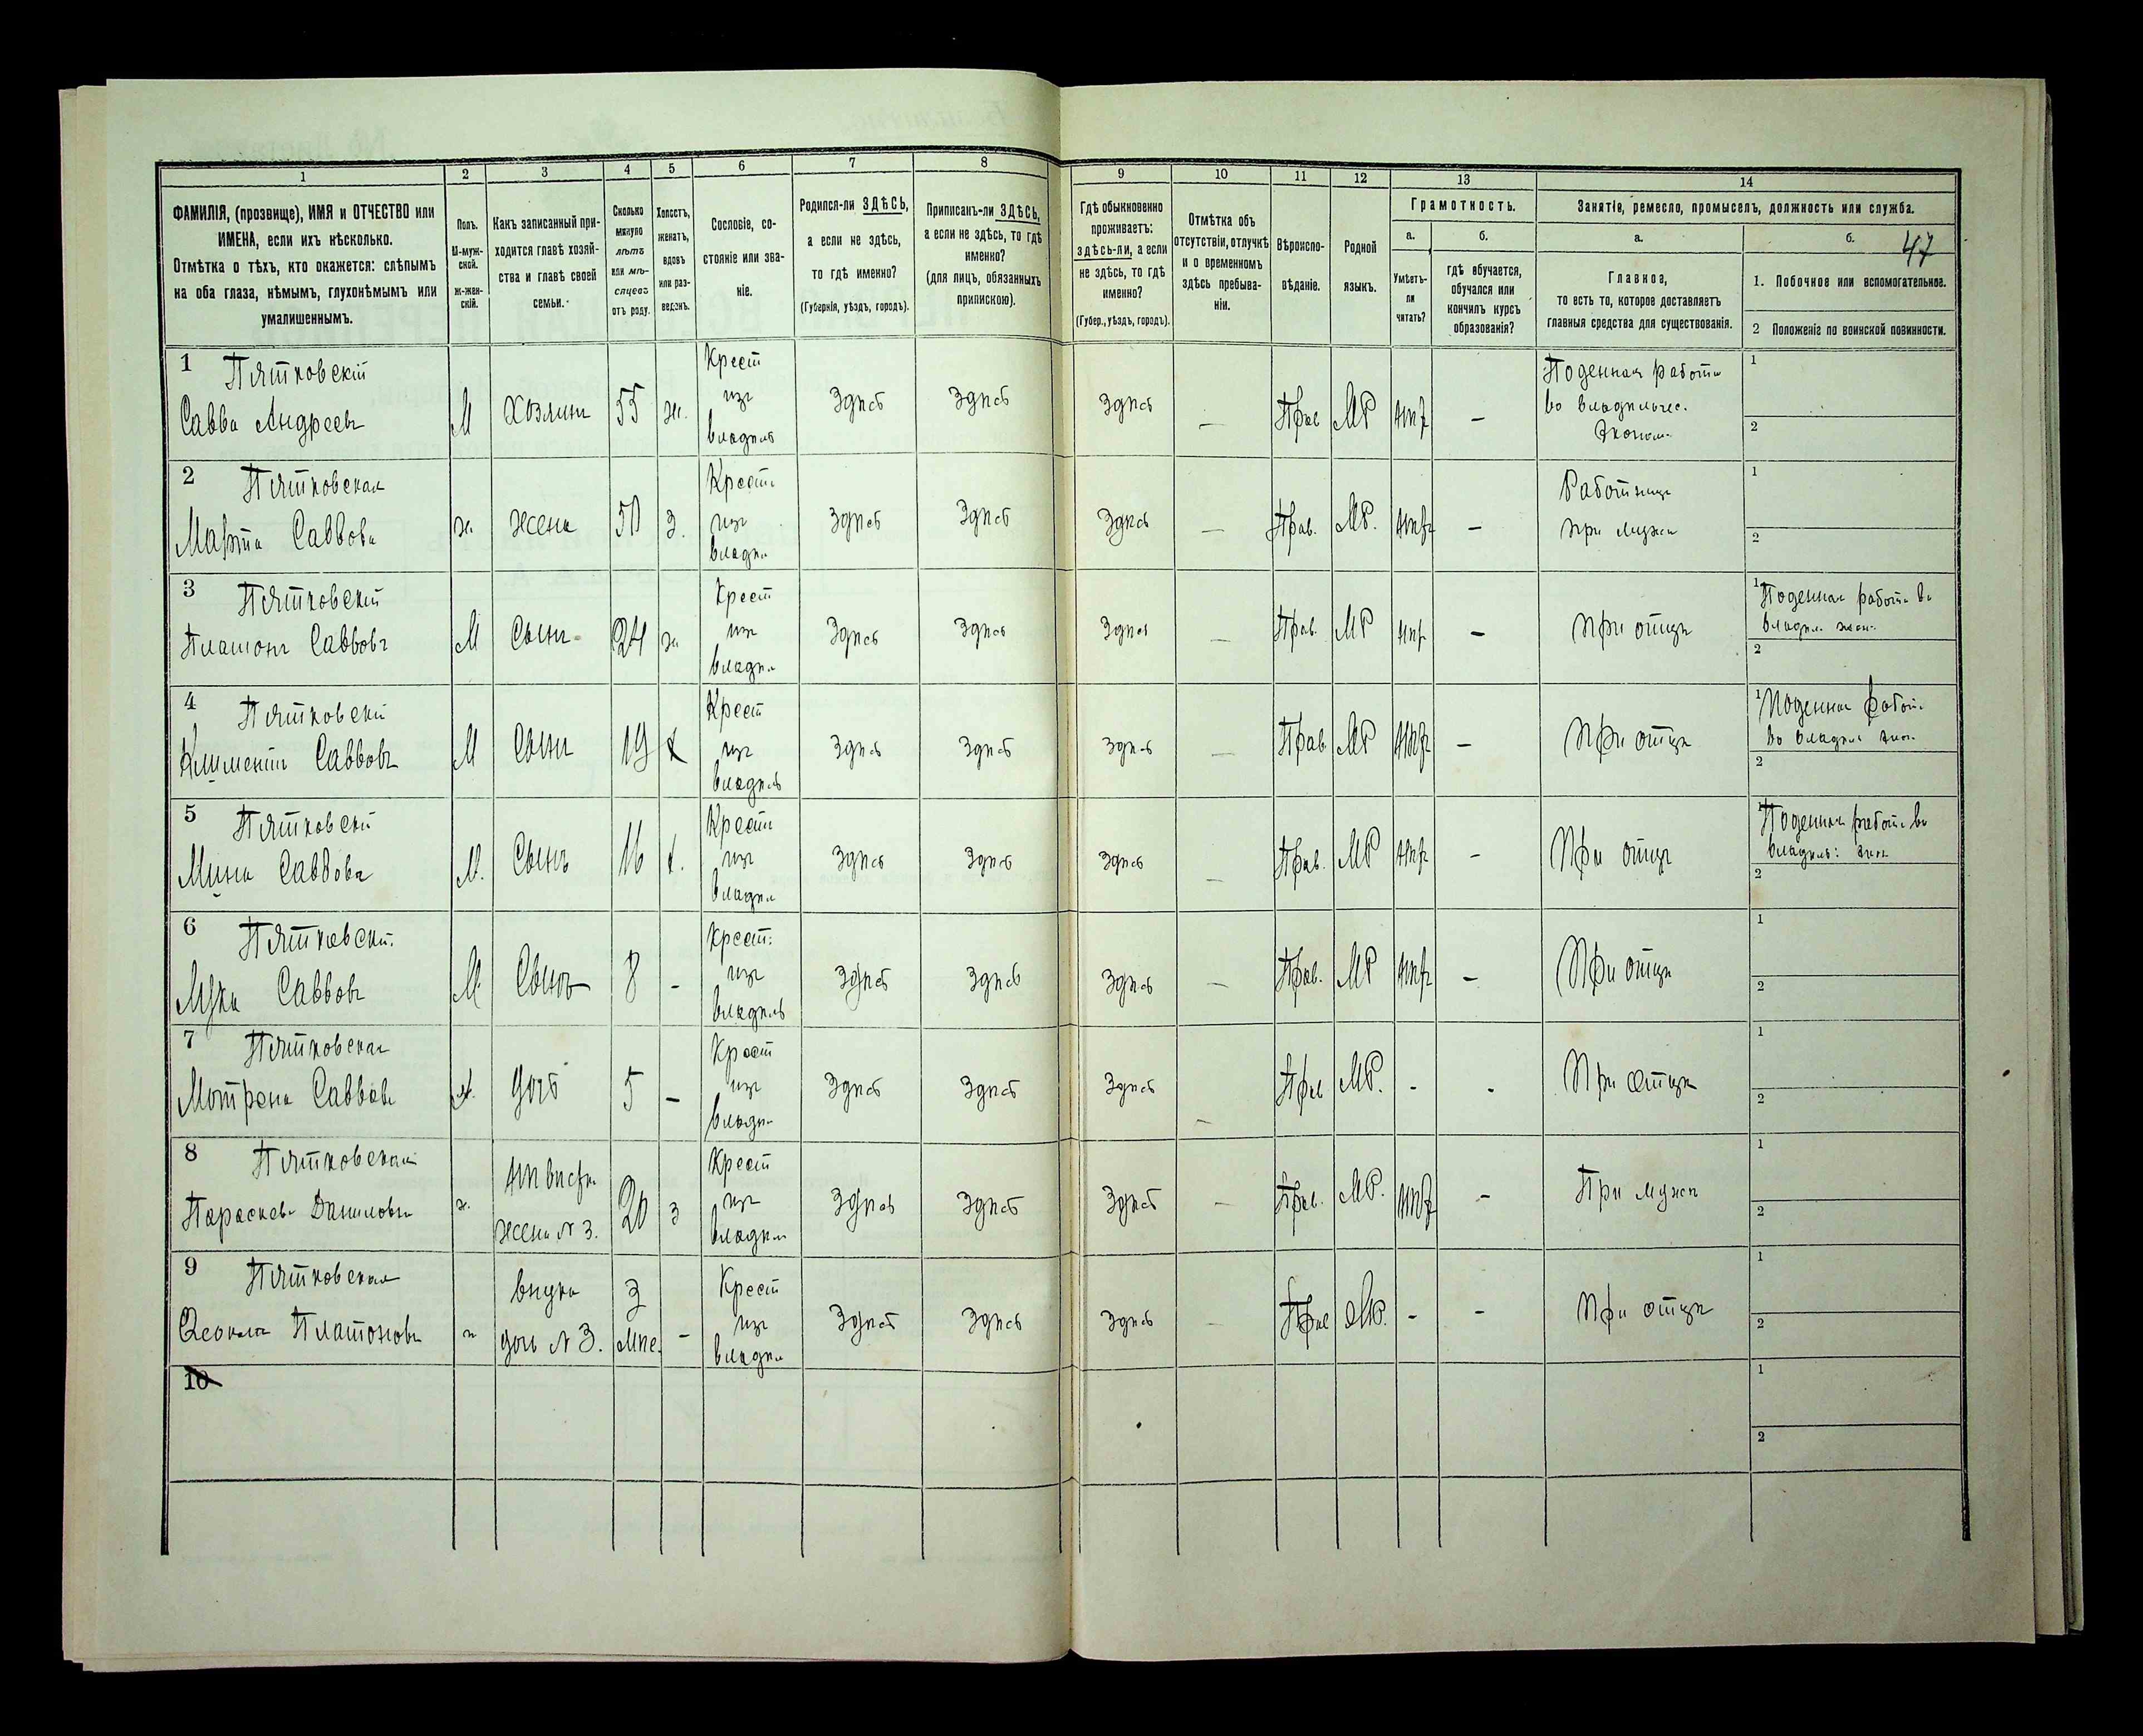 47
1 2 3 4 5 6 7 8 9 10 11 12 13 14
ФАМИЛІЯ, (прозвище), ИМЯ и ОТЧЕСТВО или
ИМЕНА, если ихъ нѣсколько.
Отмѣтка о тѣхъ, кто окажется: слѣпымъ
на оба глаза, нѣмымъ, глухонѣмымъ или
умалишеннымъ.
Полъ.
М-муж-
ской.
Ж-жен-
скій.
Какъ записанный при-
ходится главѣ хозяй-
ства и главѣ своей
семьи.
Сколько
минуло
лѣтъ
или мѣ-
сяцевъ
отъ роду.
Холостъ,
женатъ,
вдовъ
или раз-
веденъ.
Сословіе, со-
стояніе или зва-
ніе.
Родился-ли ЗДѢСЬ,
а если не здѣсь,
то гдѣ именно?
(Губернія, уѣздъ, городъ).
Приписанъ-ли ЗДѢСЬ,
а если не здѣсь, то гдѣ
именно?
(для лицъ, обязанныхъ
припискою).
Гдѣ обыкновенно
проживаетъ:
здѣсь-ли, а если
не здѣсь, то гдѣ
именно?
(Губер., уѣздъ, городъ).
Отмѣтка объ
отсутствіи, отлучкѣ
и о временномъ
здѣсь пребыва-
ніи.
Вѣроиспо-
вѣданіе.
Родной
языкъ.
Грамотность.
а.
Умѣетъ-
ли
читать?
б.
гдѣ обучается,
обучался или
кончилъ курсъ
образованія?
Занятіе, ремесло, промыселъ, должность или служба.
а.
Главное,
то есть то, которое доставляетъ
главныя средства для существованія.
б.
1. Побочное или вспомогательное.
2 Положеніе по воинской повинности.
1 Пятковскій
Савва Андреевъ
М Хозяинъ 55 ж.
Крест
изъ
владѣль
здѣсь здѣсь здѣсь — Прав МР нѣтъ —
Поденная работа
во владѣльчес.
Эконом.
1
2
2 Пятковская
Марта Саввова
ж. жена 50 з.
Крест.
изъ
владѣл
здѣсь здѣсь здѣсь — Прав. МР. нѣтъ —
Работница
при мужѣ
1
2
3 Пятковскій
Платонъ Саввовъ
М Сынъ 24 ж
Крест
изъ
владѣл
здѣсь здѣсь здѣсь — Прав. МР нѣтъ —
при отцѣ
1 Поденная работа во
владѣл. экон.
2
4 Пятковскій
Климентій Саввовъ
М Сынъ 19 х
Крест
изъ
владѣль
здѣсь здѣсь здѣсь — Прав МР нѣтъ —
при отцѣ
1 Поденная работ.
во владѣл экон.
2
5 Пятковскій
Мина Саввовъ
М. Сынъ 16 х.
Крест
изъ
владѣл
здѣсь здѣсь здѣсь — Прав. МР нѣтъ —
При отцѣ
1 Поденная работа во
владѣль: экон
2
6 Пятковскій
Лука Саввовъ
М. Сынъ 8 -
Крест.
изъ
владѣль
здѣсь здѣсь здѣсь — Прав. МР нѣтъ —
При отцѣ
1
2
7 Пятковская
Мотрона Саввова
ж. дочь 5 —
Крест
изъ
владѣл
здѣсь здѣсь здѣсь — Прав МР. - -
При отцѣ
1
2
8 Пятковская
Параскева Данилова
ж. невѣстка
жена № 3. 20 з
Крест
изъ
владѣл
здѣсь здѣсь здѣсь — Прав. МР. нѣтъ —
При мужѣ
1
2
9 Пятковская
Платонова
ж внука
дочь № 3. 3
мѣс. —
Крест
изъ
владѣл
здѣсь здѣсь здѣсь — Прав МР. - -
При отцѣ
1
2
10
1
2